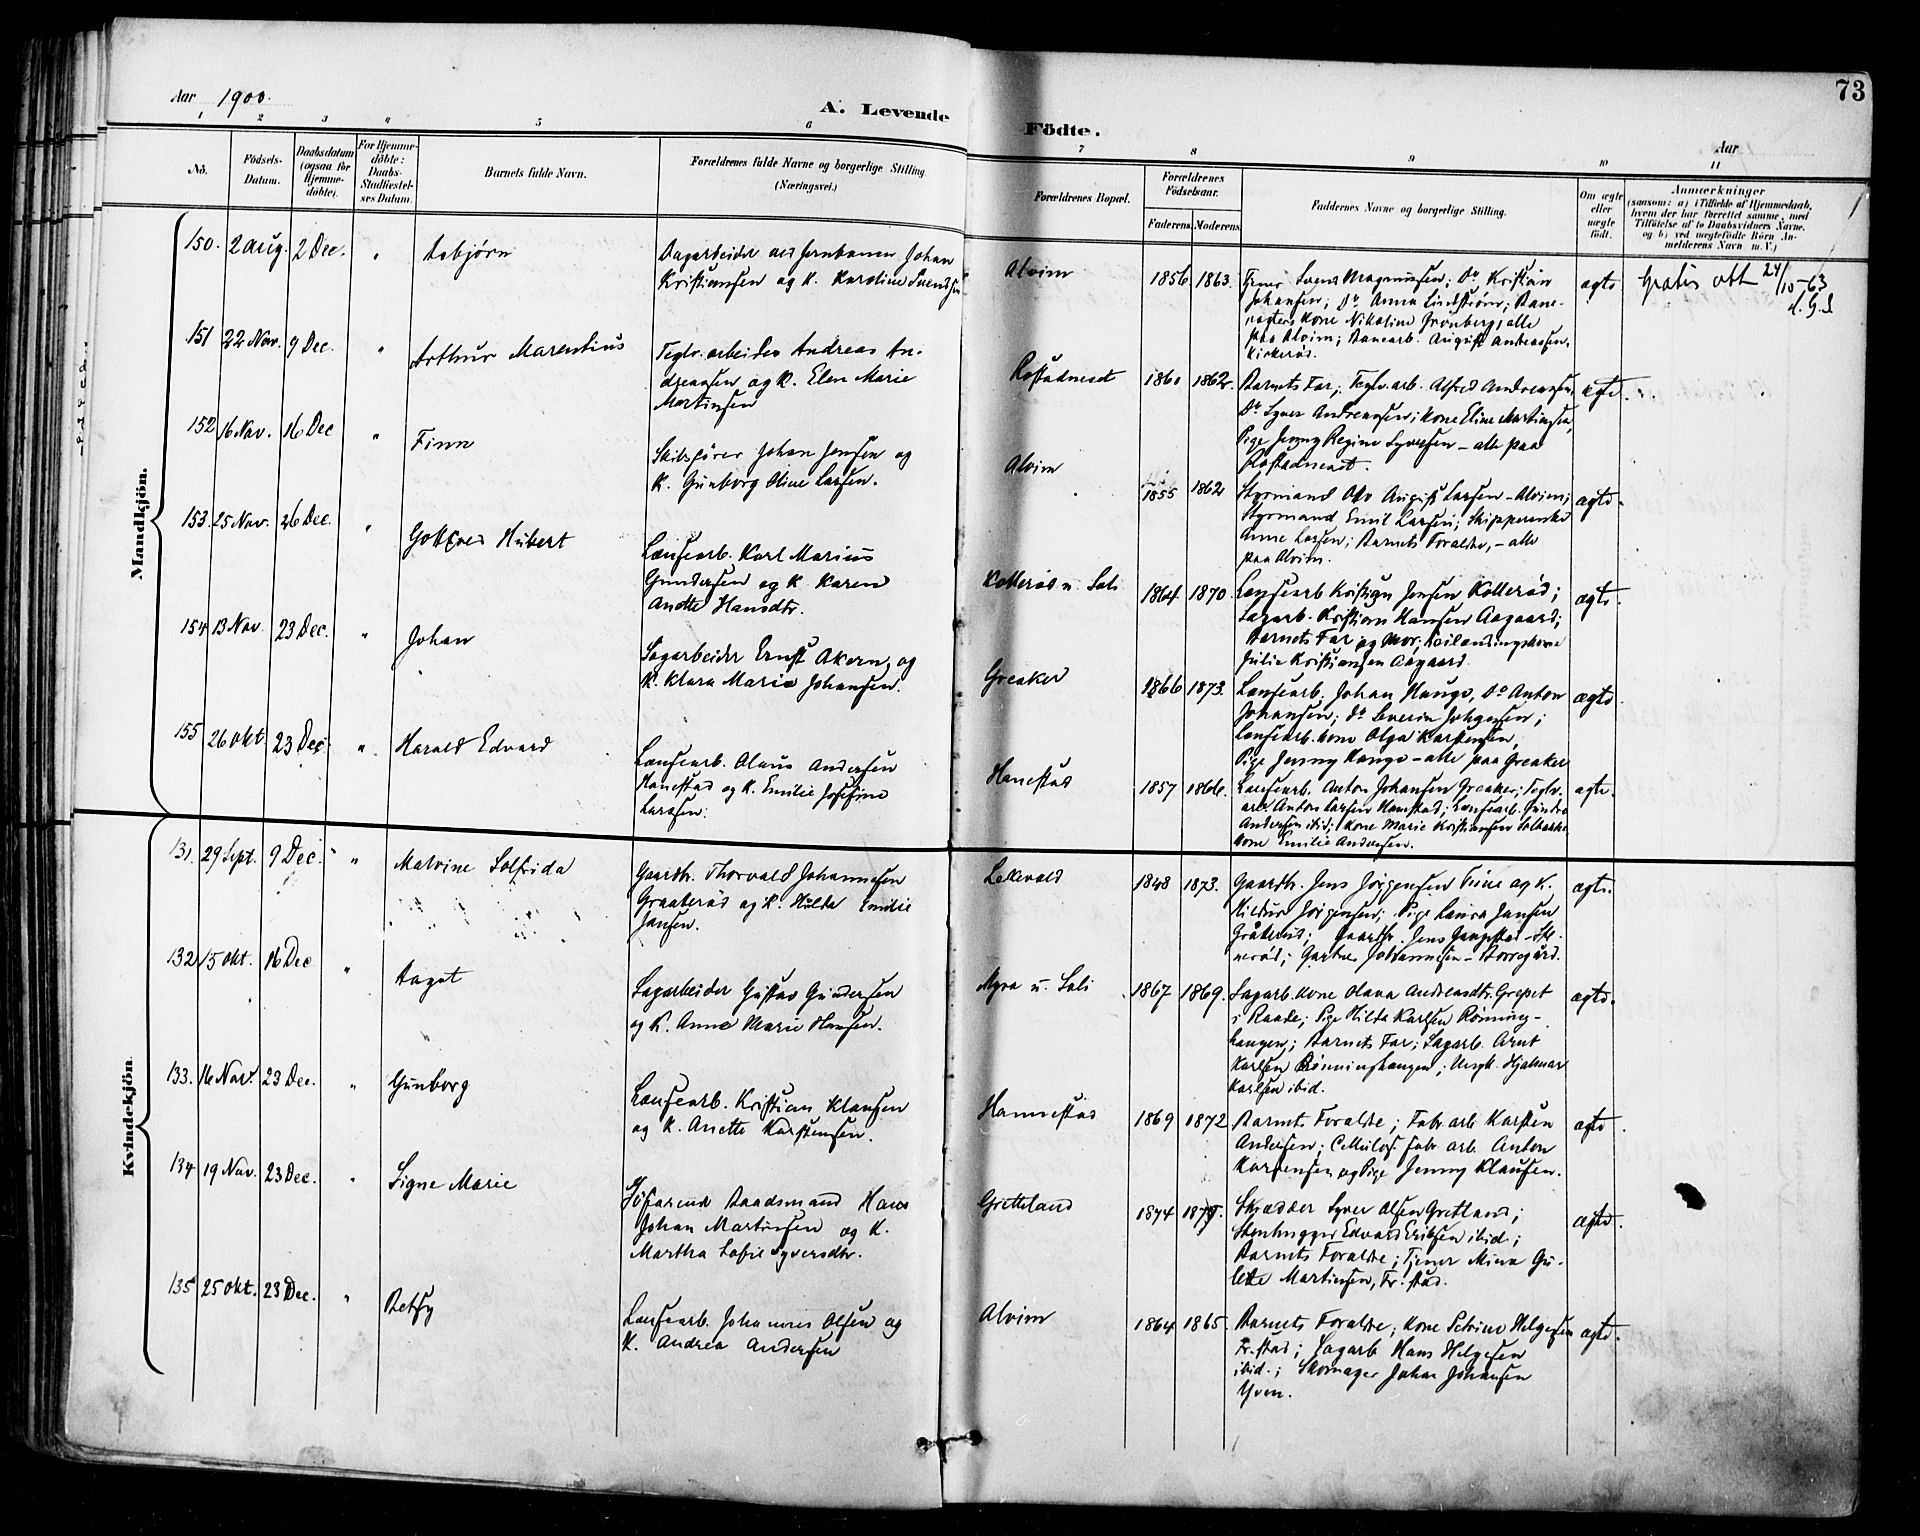 73
Aar 1900.
A. Levende
Födte.
Aar
1 2 3 4 5 6 7 8 9 10 11
No.
Födsels-
Datum.
Daabsdatum
(ogsaa for
Hjemme-
döbte).
For Hjemme-
döbte:
Daabs-
Stadfæstel-
ses Datum.
Barnets fulde Navn.
Forældrenes fulde Navne og borgerlige Stilling
(Næringsvei.)
Forældrenes Bopæl.
Forældrenes
Födselsaar.
Faderens. Moderens.
Faddernes Navne og borgerlige Stilling.
Om ægte
eller
uægte
födt.
Anmærkninger
(saasom: a) i Tilfælde af Hjemmedaab,
hvem der har forrettet samme, med
Tilföielse af to Daabsvidners Navne.
og b) ved uægtefödte Börn An-
melderens Navn m. V.)
Mandkjön.
150. 2 Aug. 2 Dec. " Asbjørn
Dagarbeider ved Jernbanen Johan
Kristiansen og K. Karoline Svendsen
Alvim 1856 1863.
Tjener Svend Magnussen; Do Kristian
Johansen; Do Anna Lindstrøm; Bane-
vogters Kone Nikoline Grønberg, alle
paa Alvim; Banearb. August Andreassen,
Kirkerød.
ægte Gratis att 24/10-63
151 22 Nov. 9 Dec. " Arthur Marentius
Teglv. arbeider Andreas An-
dreassen og K. Elen Marie
Martinsen
Rostadneset 1860 1862.
Barnets Far; Teglv. arb. Alfred Andreassen,
Do Syver Andreassen; Kone Eline Martinsen,
Pige Jenny Regine Syversen - alle paa
Rostadneset.
ægte.
152 16 Nov. 16 Dec " Finn
Skibsfører Johan Jensen og
K. Gunborg Oline Larsen.
Alvim 1855 1862
Styrmand Otto August Larsen - Alvim;
Styrmand Emil Larsen; Skipperenke
Anne Larsen; Barnets Forældre, - alle
paa Alvim.
ægte.
153. 25 Nov. 26 Dec. " Gottfred Hubert
Lænsearb. Karl Marius
Gundersen og K. Karen
Anette Hansdtr.
Kollerød u. Soli 1864 1870.
Lænsearb Kristian Jensen Kollerød;
Sagarb. Kristian Hansen Aagaard;
Barnets Far og Mor;
Julie Kristiansen Aagaard.
ægte.
154 13 Nov 23 Dec. " Johan
Sagarbeider Ernst Akern, og
K. Klara Marie Johansen.
Greaker 1866 1873.
Lænsearb. Johan Haugo, Do Anton
Johansen; Do Severin Johansen;
Lænsearb. kone Olga Karstensen,
Pige Jenny Haugo - alle paa Greaker
ægte
155 26 Okt 23 Dec " Harald Edvard
Lænsearb. Olaus Andersen
Hanestad og K. Emilie Josefine
Larssen.
Hanestad 1857 1866.
Lænsearb. Anton Johansen Greaker; Teglv.
arb Anton Larsen Hanestad; Lænsearb. Gunder
Andersen ibid; Kone Marie Kristiansen
Kone Emilie Andersen.
ægte.
Kvindekjön.
131. 29 Sept. 9 Dec. " Malvine Solfrida
Gaardbr. Thorvald Johannesen
Graaterød og K. Hulda Emilie
Jansen.
Lekevold 1848 1873.
Gaardbr. Jens Jørgensen Tune og K.
Hildur Jørgensen; Pige Laura Jansen
Gråterød; Gaardbr. Jens
Johannesen - Borregård.
ægte.
132 15 Okt. 16 Dec " Dagot
Sagarbeider Gustav Gundersen
og K. Anne Marie Hansen.
Myra u. Soli 1867 1869.
Sagarb. Kone Olava Andreasdtr. Grepet
i Raade; Pige Hilda Karlsen Rønning-
haugen; Barnets Far; Sagarb. Arnt
Karlsen Rønninghaugen; Ungk. Hjalmar
Karlsen ibid.
ægte.
133. 16 Nov. 23 Dec. " Gunborg
Lænsearb. Kristian Klausen
og K. Anette Karstensen.
Hannestad 1869 1872
Barnets Forældre; Fabr. arb Karsten
Andersen; Cellulos. fabr. arb. Anton
Karstensen og Pige Jenny Klausen.
ægte
134 19 Nov. 23 Dec. " Signe Marie
Jøfarende Baadsmand Hans
Johan Martinsen og K.
Martha Sofie Syversdtr.
Gretteland 1874
Skrædder Syver Olsen Gretland;
Stenhugger Edvard Eriksen ibid;
Barnets Forældre; Tjener Mina Gu-
lette Martinsen, Fr. stad.
ægte.
135 25 Okt. 23 Dec. " Betsy
Lænsearb. Johannes Olsen og
K. Andrea Andersen
Alvim 1864 1865.
Barnets Forældre; Kone Petrine Helgesen
Fr. stad; Sagarb Hans Helgesen
ibid.; Skomager Johan Johansen
Yven.
ægte.